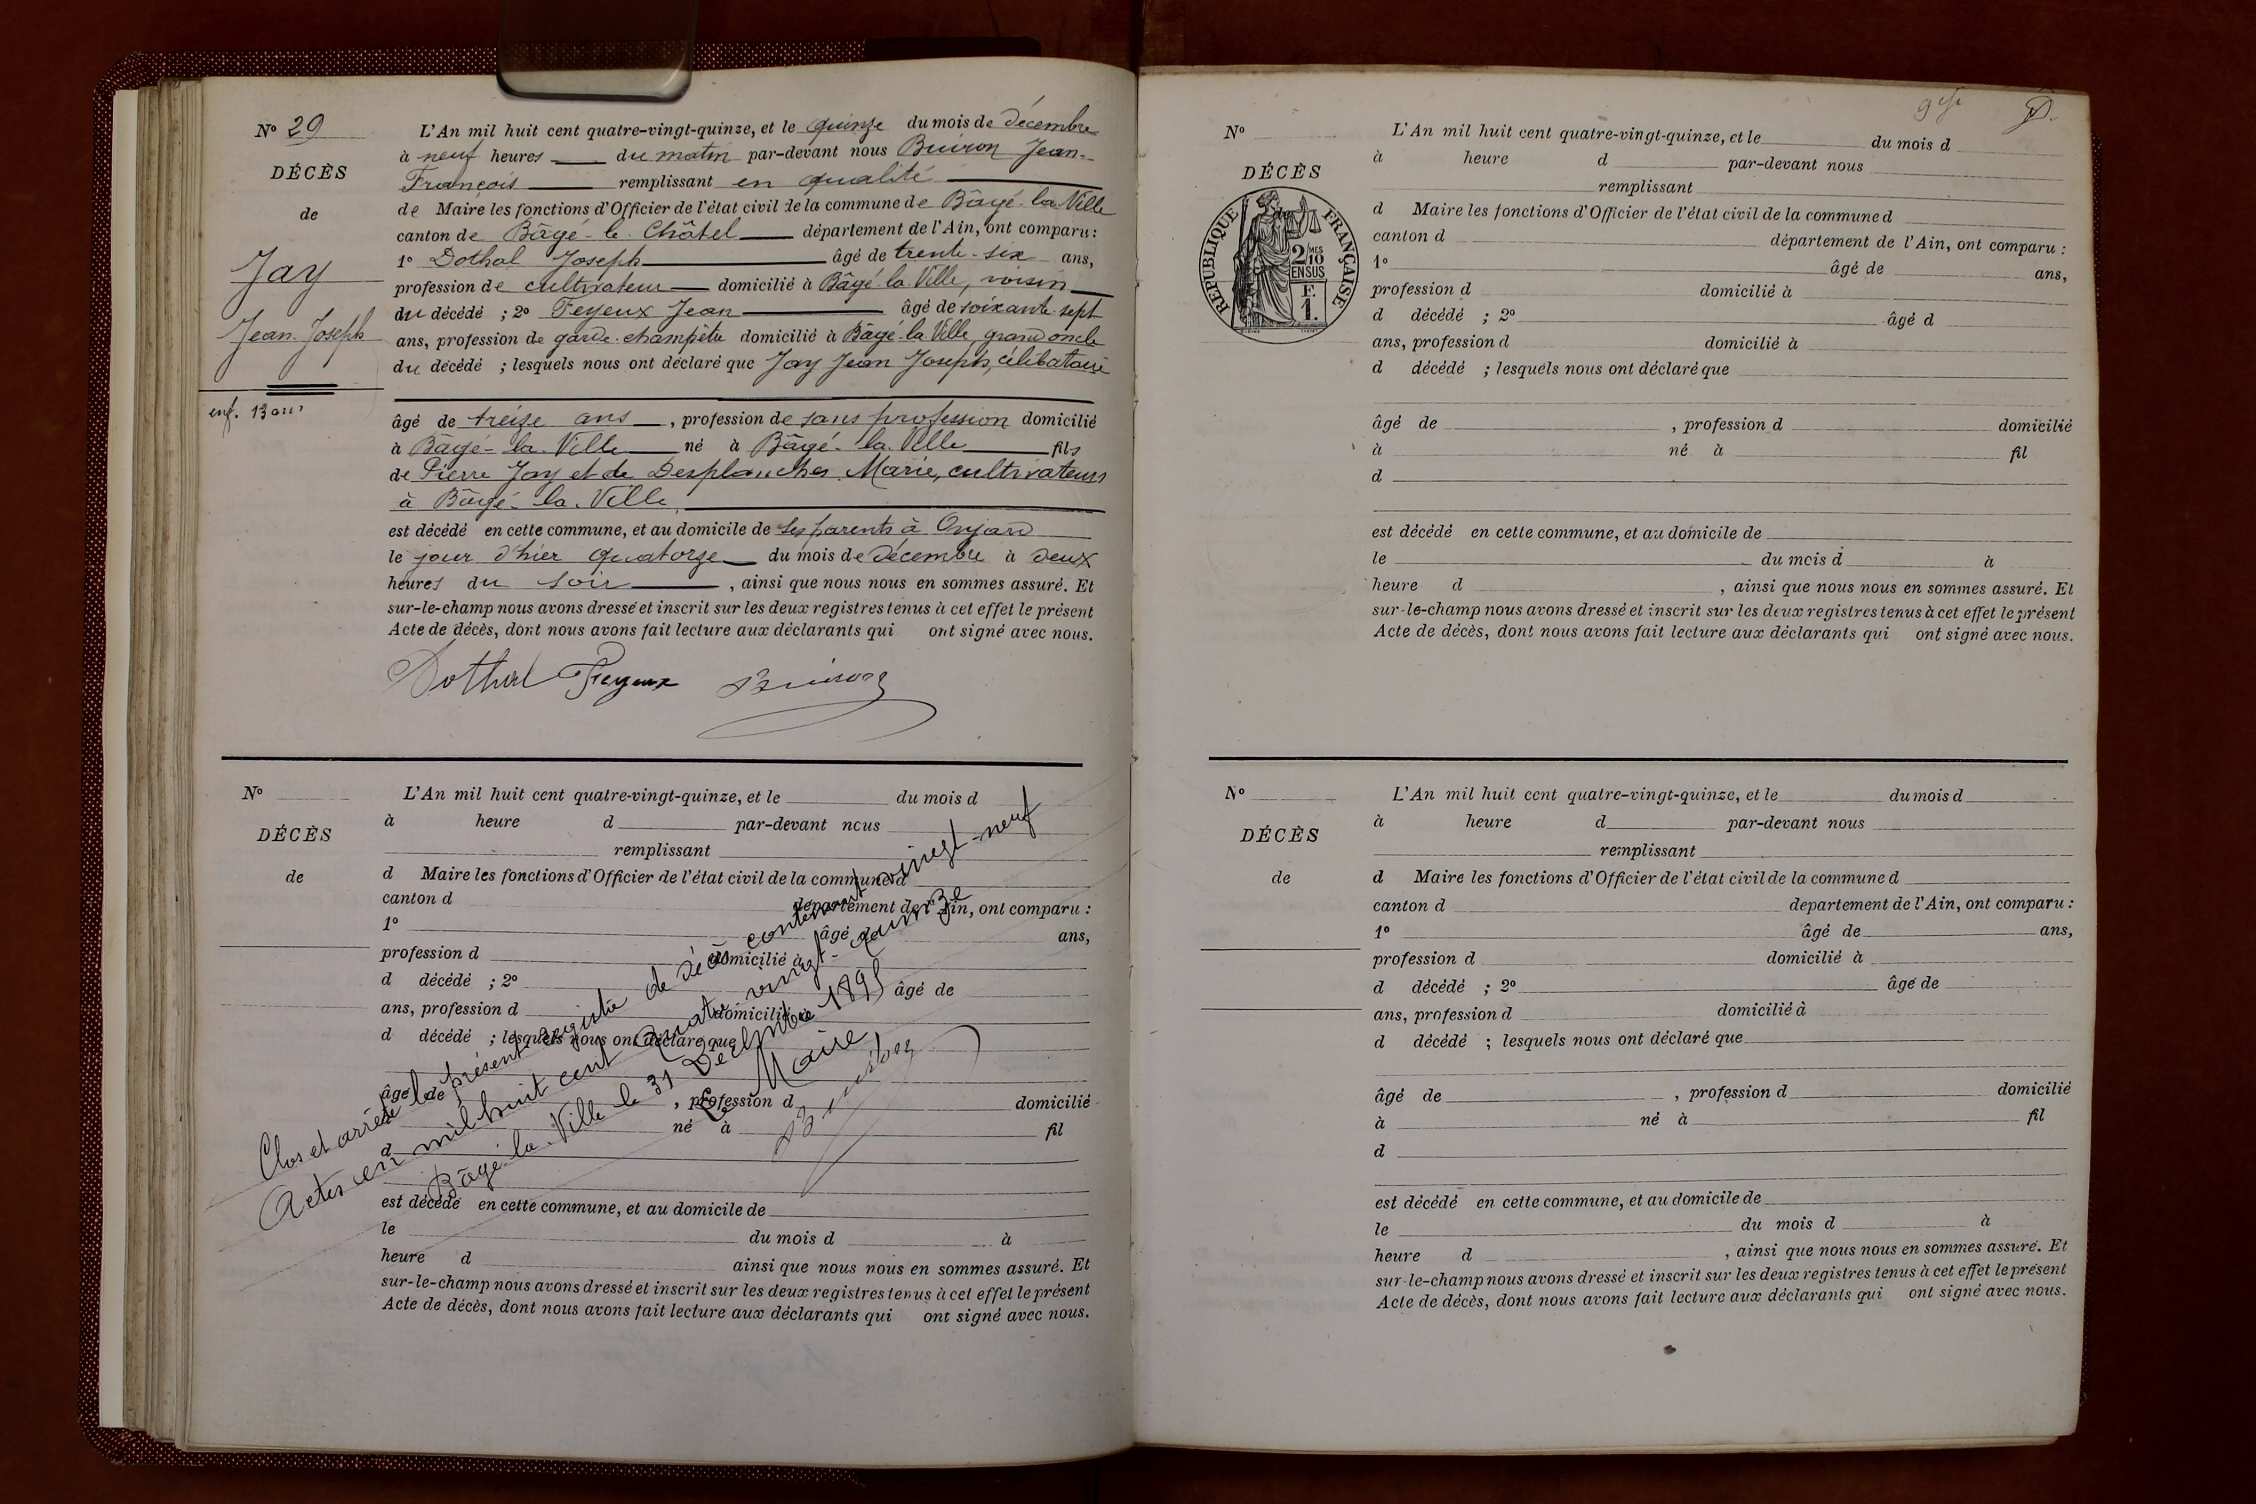 N° 29
DÉCÈS
de
Jay
Jean Joseph
enf. 13 ans
L'An mil huit cent quatre-vingt-quinze, et le quinze du mois de décembre
à neuf heures du matin par-devant nous Buiron Jean-
François remplissant en qualité
de Maire les fonctions d'Officier de l'état civil de la commune de Bâgé-la-Ville
canton de Bâgé-le-Châtel département de l'Ain, ont comparu :
1° Dothal Joseph âgé de trente-six ans,
profession de cultivateur domicilié à Bâgé-la-Ville, voisin
du décédé ; 2° Feyeux Jean âgé de soixante-sept
ans, profession de garde-champêtre domicilié à Bâgé-la-Ville, grand oncle
du décédé ; lesquels nous ont déclaré que Jay Jean Joseph, célibataire
âgé de treize ans, profession de sans profession domicilié
à Bâgé-la-Ville né à Bâgé-la-Ville fils
de Pierre Jay et de Desplanches Marie, cultivateurs
à Bâgé-la-Ville,
est décédé en cette commune, et au domicile de ses parents à Onjard
le jour d'hier quatorze du mois de décembre à deux
heures du soir, ainsi que nous nous en sommes assuré. Et
sur-le-champ nous avons dressé et inscrit sur les deux registres tenus à cet effet le présent
Acte de décès, dont nous avons fait lecture aux déclarants qui ont signé avec nous.
Dothal Feyeux Buiron
N°
DÉCÈS
de
L'An mil huit cent quatre-vingt-quinze, et le du mois d
à heure d par-devant nous
remplissant
d Maire les fonctions d'Officier de l'état civil de la commune d
canton d département de l'Ain, ont comparu :
1° âgé de ans,
profession d domicilié à
d décédé ; 2° âgé de
ans, profession d domicilié à
d décédé ; lesquels nous ont déclaré que
âgé de , profession d domicilié
à né à fil
d
est décédé en cette commune, et au domicile de
le du mois d à
heure d ainsi que nous nous en sommes assuré. Et
sur-le-champ nous avons dressé et inscrit sur les deux registres tenus à cet effet le présent
Acte de décès, dont nous avons fait lecture aux déclarants qui ont signé avec nous.
Clos et arrêté le présent registre de décès contenant vingt-neuf
Actes en mil huit cent quatre-vingt-quinze
Bâgé-la-Ville le 31 Décembre 1895
Le Maire
Buiron
N°
DÉCÈS
RÉPUBLIQUE FRANÇAISE
2 MES
10
EN SUS
F.
1.
L'An mil huit cent quatre-vingt-quinze, et le du mois d
à heure d par-devant nous
remplissant
d Maire les fonctions d'Officier de l'état civil de la commune d
canton d département de l'Ain, ont comparu :
1° âgé de ans,
profession d domicilié à
d décédé ; 2° âgé d
ans, profession d domicilié à
d décédé ; lesquels nous ont déclaré que
âgé de , profession d domicilié
à né à fil
d
est décédé en cette commune, et au domicile de
le du mois d à
heure d , ainsi que nous nous en sommes assuré. Et
sur-le-champ nous avons dressé et inscrit sur les deux registres tenus à cet effet le présent
Acte de décès, dont nous avons fait lecture aux déclarants qui ont signé avec nous.
N°
DÉCÈS
de
L'An mil huit cent quatre-vingt-quinze, et le du mois d
à heure d par-devant nous
remplissant
d Maire les fonctions d'Officier de l'état civil de la commune d
canton d departement de l'Ain, ont comparu :
1° âgé de ans,
profession d domicilié à
d décédé ; 2° âgé de
ans, profession d domicilié à
d décédé ; lesquels nous ont déclaré que
âgé de , profession d domicilié
à né à fil
d
est décédé en cette commune, et au domicile de
le du mois d à
heure d , ainsi que nous nous en sommes assuré. Et
sur-le-champ nous avons dressé et inscrit sur les deux registres tenus à cet effet le présent
Acte de décès, dont nous avons fait lecture aux déclarants qui ont signé avec nous.